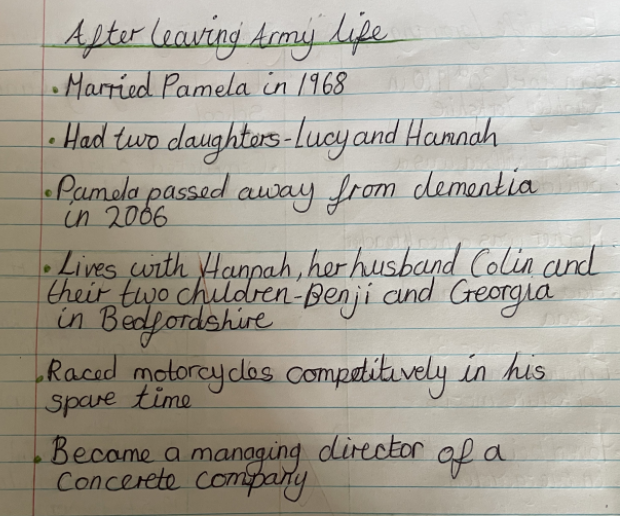 After leaving Army life
• Married Pamela in 1968
• Had two daughters - Lucy and Hannah
• Pamela passed away from dementia
in 2006
• Lives with Hannah, her husband Colin and
their two children - Benji and Georgia
in Bedfordshire
• Raced motorcycles competitively in his
spare time
• Became a managing director of a
concerete company